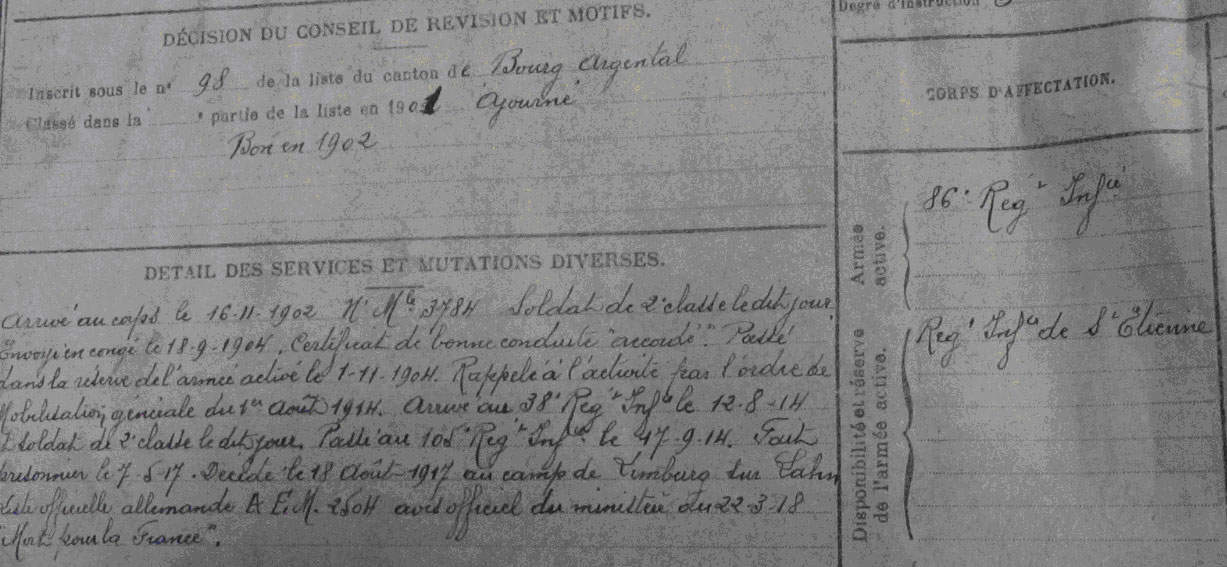 DÉCISION DU CONSEIL DE REVISION ET MOTIFS.
Inscrit sous le n° 98 de la liste du canton de Bourg Argental
Classé dans la ᵉ partie de la liste en 1901 Ajourné
Bon en 1902
DETAIL DES SERVICES ET MUTATIONS DIVERSES.
Arrivé au corps le 16-11-1902 Nº Mle 3784 Soldat de 2e classe le dit jour.
Envoyé en congé le 18-9-1904. Certificat de bonne conduite "accordé". Passé
dans la réserve de l'armée active le 1-11-1904. Rappelé à l'activité par l'ordre de
Mobilisation générale du 1er Août 1914. Arrivé au 38e Regt Infie le 12-8-14
Soldat de 2e classe le dit jour. Passé au 105e Regt Infie le 17-9-14. Fait
prisonnier le 7-5-17. Décédé le 18 Août 1917 au camp de Limburg sur Lahn
Liste officielle allemande A E.M. 2504 avis officiel du ministère du 22-3-18
"Mort pour la France".
Degré d'instruction
CORPS D'AFFECTATION.
Armée active.
86e Regt Infie
Disponibilité et réserve de l'armée active.
Regt Infie de St Etienne